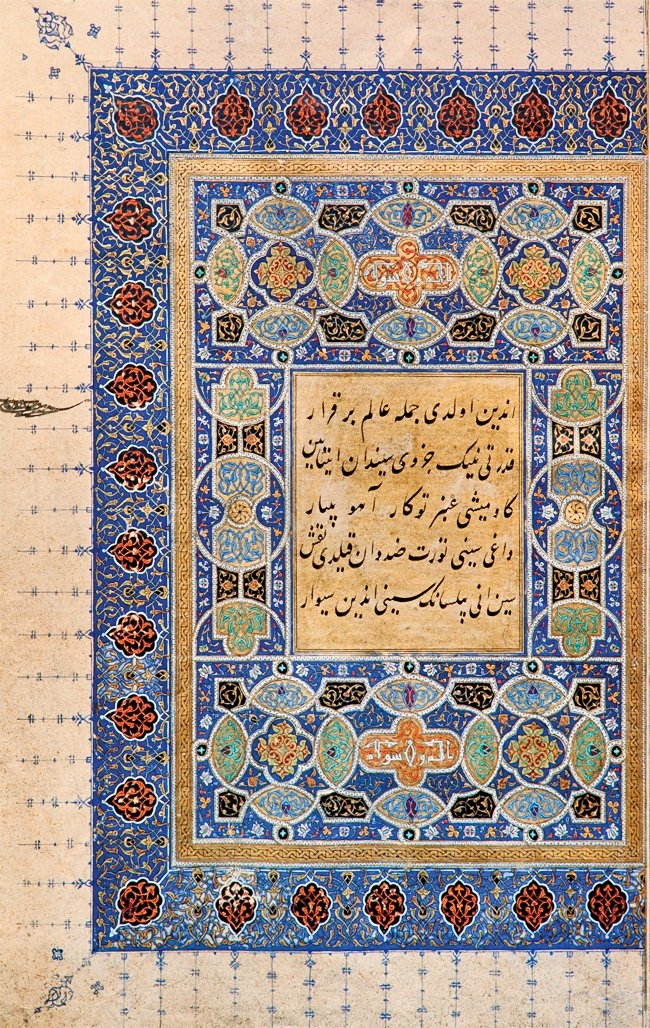 اندین اولدی جمله عالم بر قرار
قدرتی نینک جزوی سیندان ایتایین
کاومیشی عنبر توکار آهو
داغی سینی تورت ضددان قیلدی نقش
سین انی بیلسانک سینی اندین سیوار